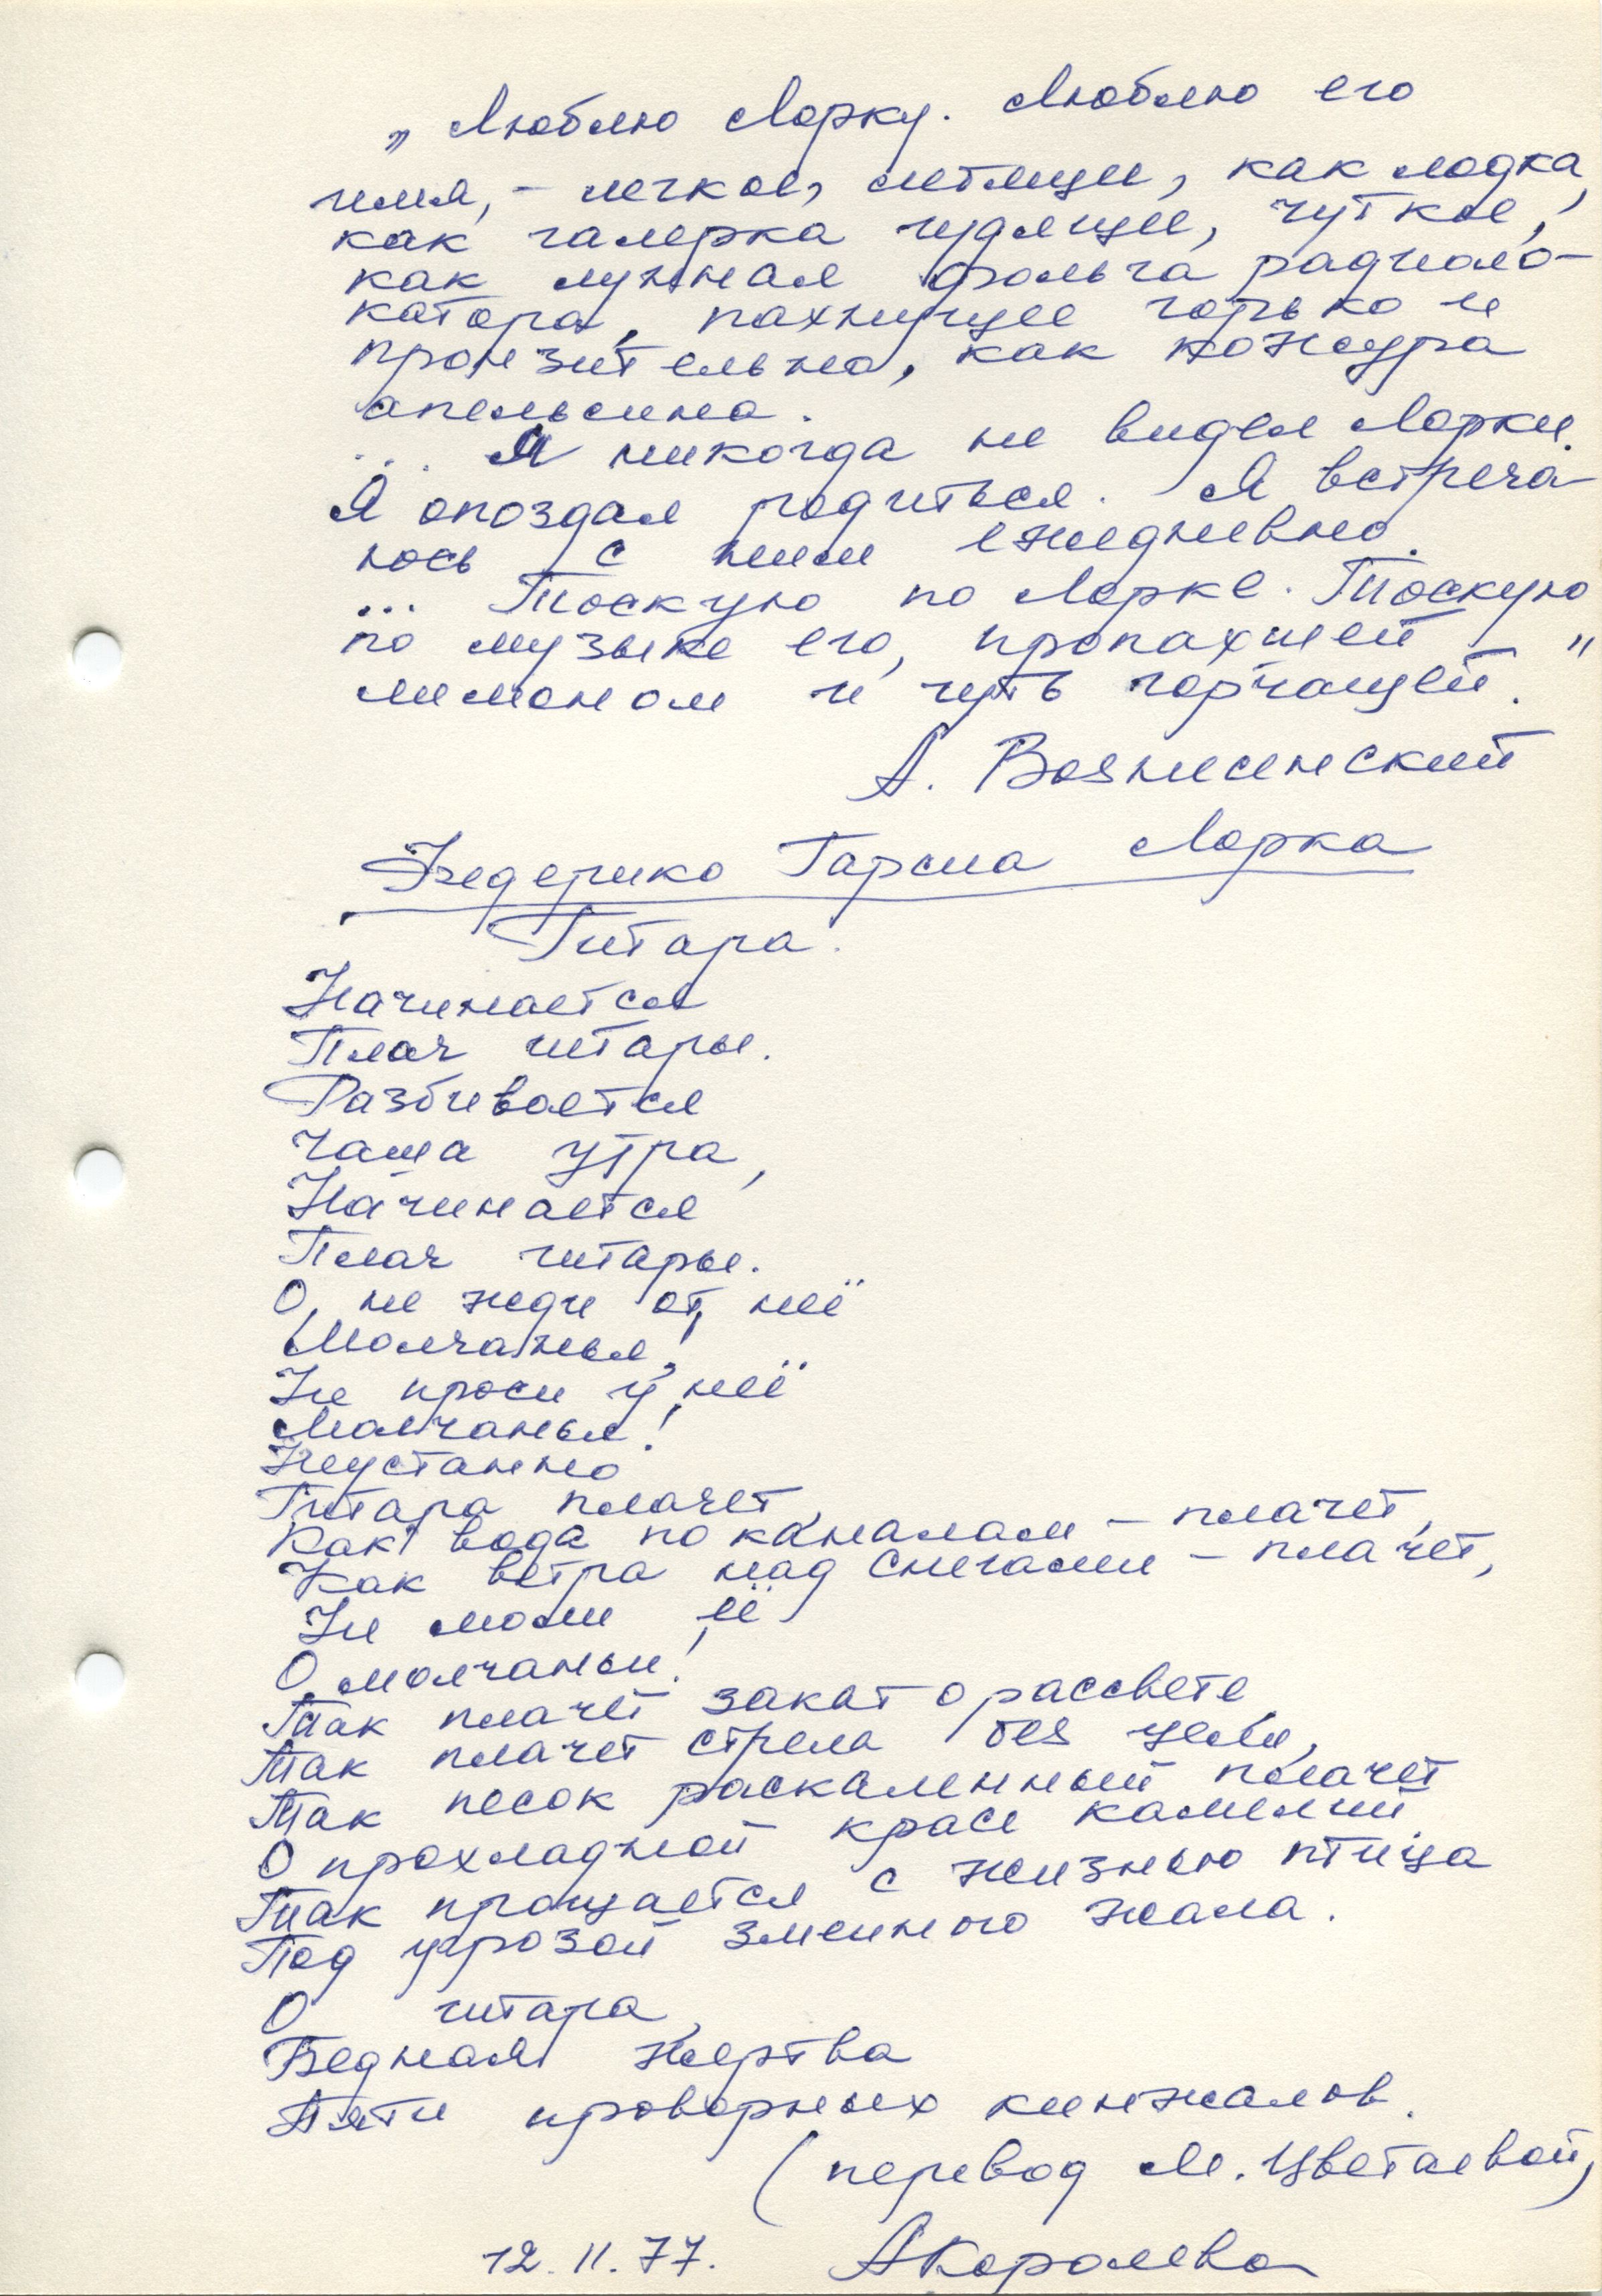 „Люблю Лорку. Люблю его
имя, – легкое, летящее, как лодка,
как галерка гудящее, чуткое,
как лунная фольга радиоло-
катора, пахнущее горько и
пронзительно, как кожура
апельсина.
... Я никогда не видел Лорки.
Я опоздал родиться. Я встреча
юсь с ним ежедневно.
... Тоскую по Лорке. Тоскую
по музыке его, пропахшей
лимоном и чуть горчащей."
А. Вознесенский
Федерико Гарсиа Лорка
Гитара.
Начинается
Плач гитары.
Разбивается
Чаша утра,
Начинается
Плач гитары.
О, не жди от неё
Молчанья!
Не проси у неё
Молчанья!
Неустанно
Гитара плачет,
Как вода по каналам – плачет,
Как ветра над снегами – плачет,
Не моли её
О молчаньи!
Так плачет закат о рассвете,
Так плачет стрела без цели,
Так песок раскаленный плачет
О прохладной красе камелий.
Так прощается с жизнью птица
Под угрозой змеиного жала.
О гитара,
Бедная жертва
Пяти проворных кинжалов.
(перевод М. Цветаевой)
12.11.77. АКоролева